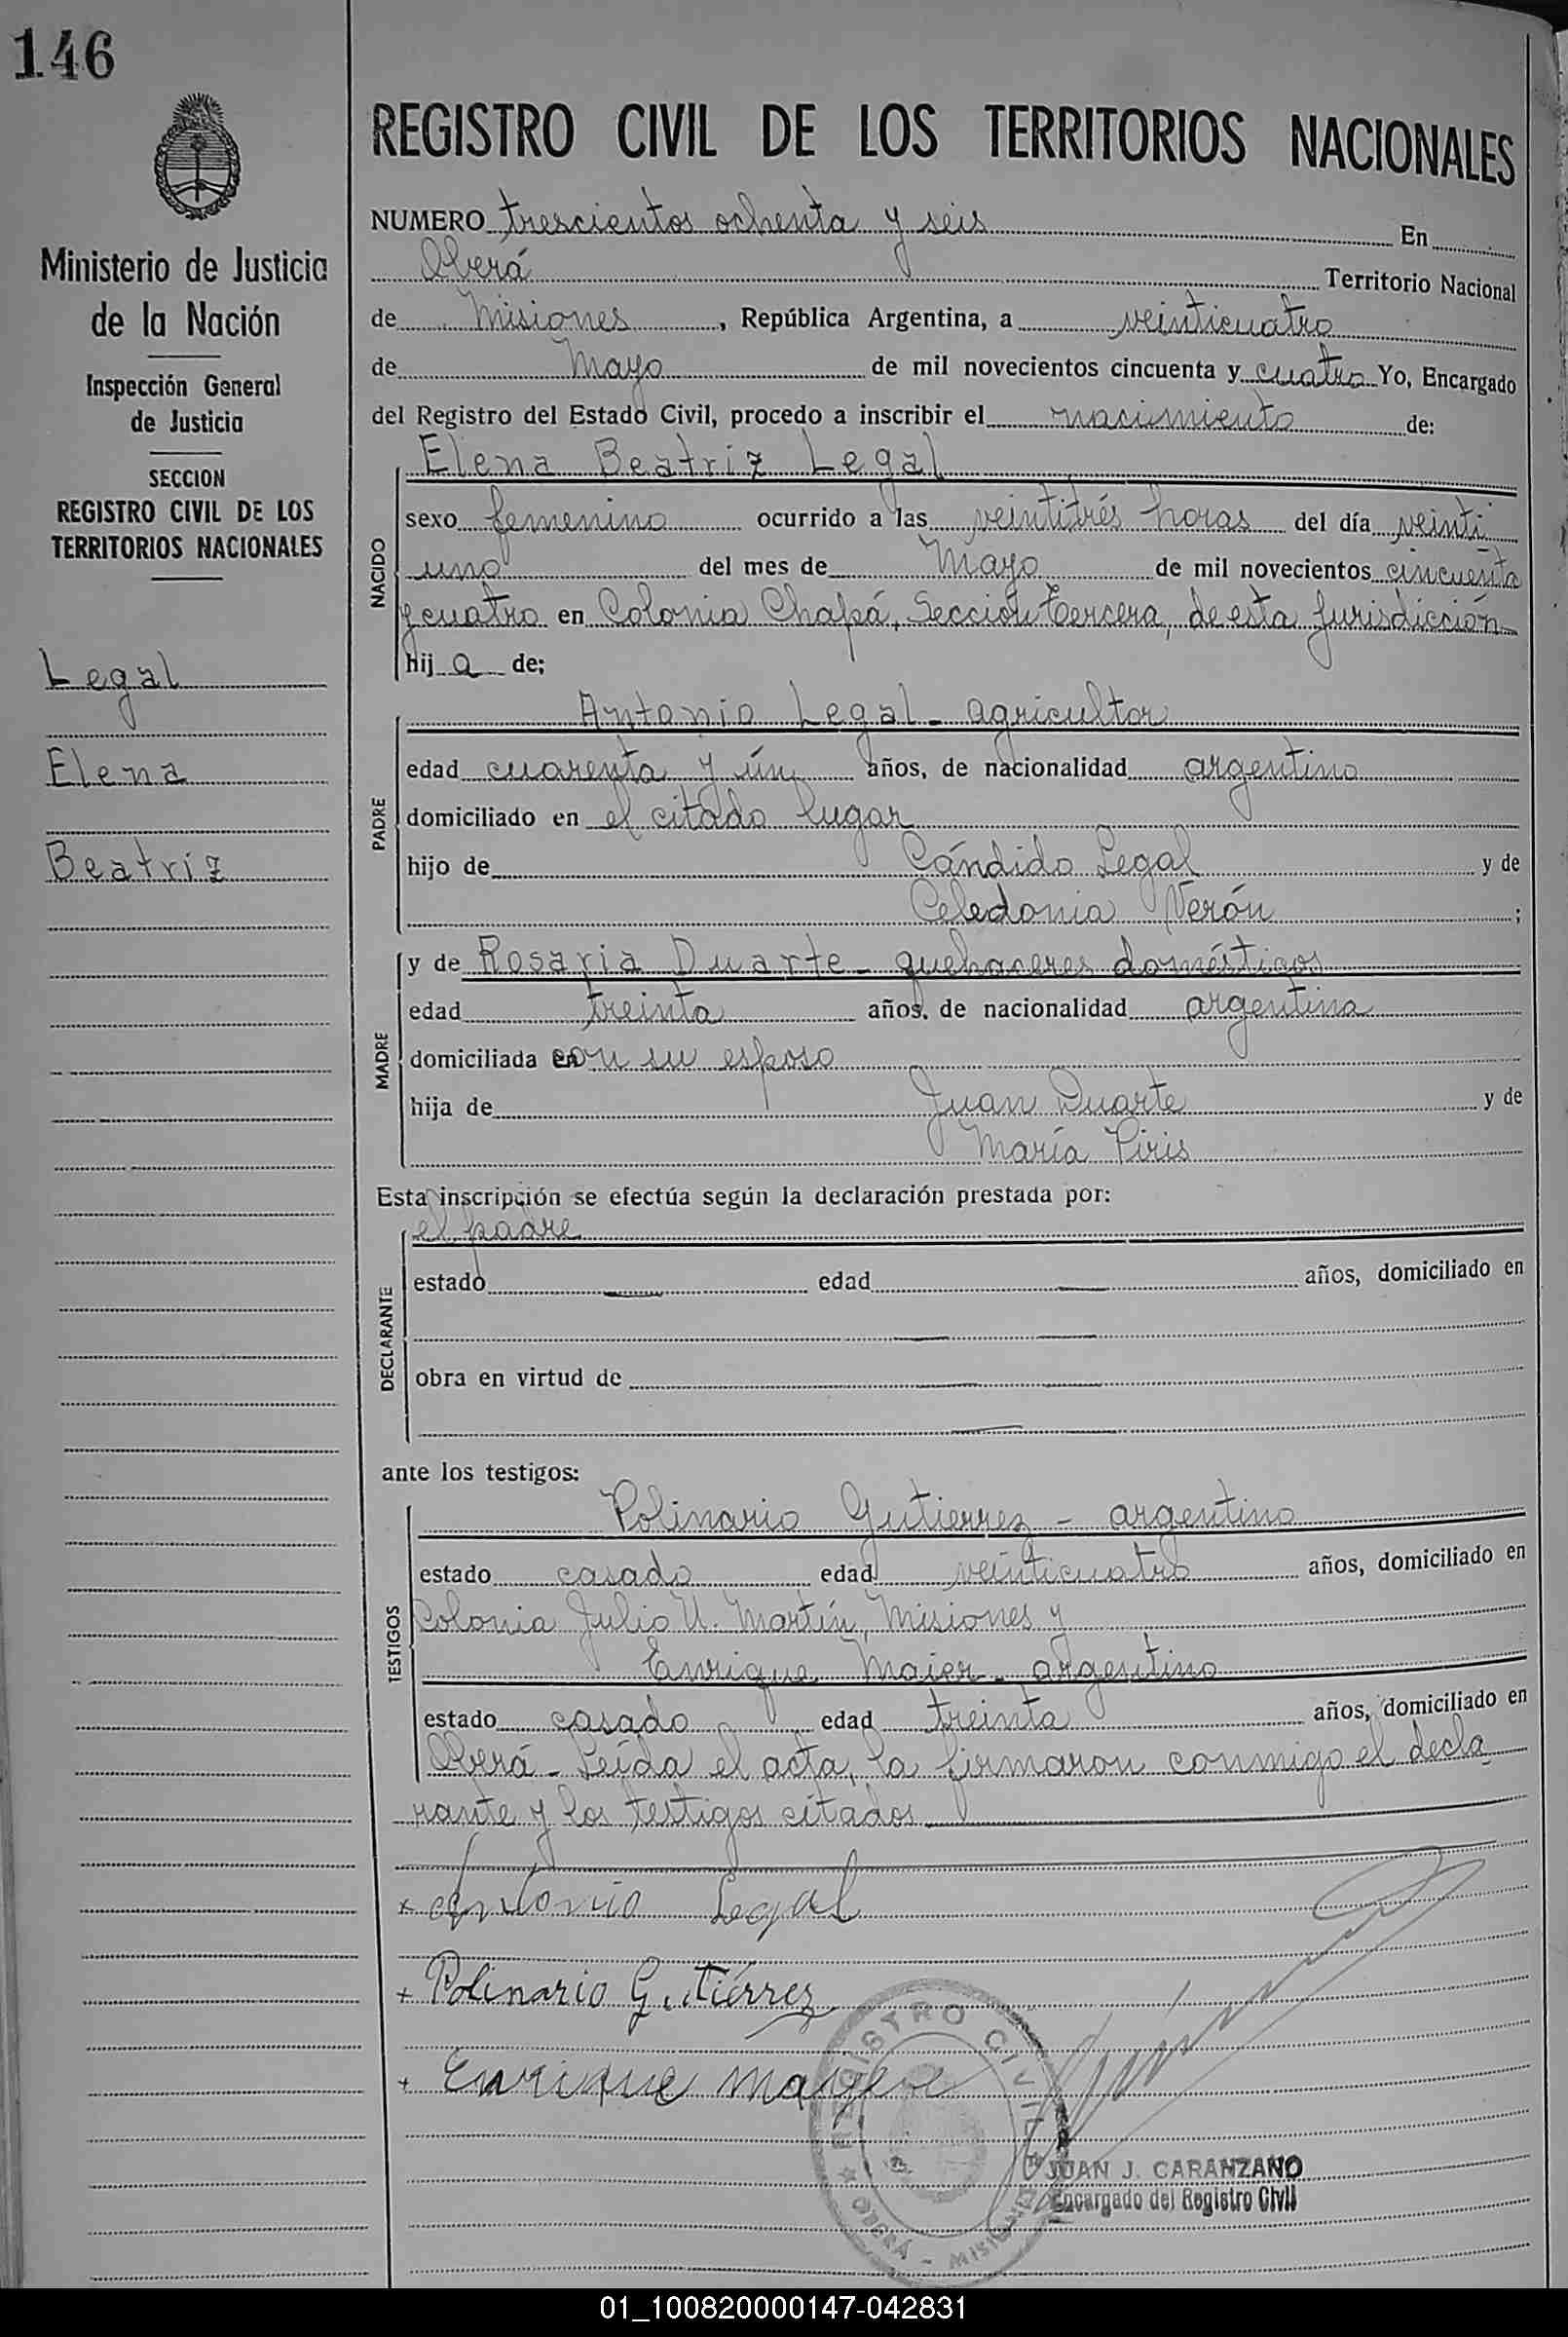 146
Ministerio de Justicia
de la Nación
Inspección General
de Justicia
SECCION
REGISTRO CIVIL DE LOS
TERRITORIOS NACIONALES
Legal
Elena
Beatriz
REGISTRO CIVIL DE LOS TERRITORIOS NACIONALES
NUMERO trescientos ochenta y seis En
Oberá Territorio Nacional
de Misiones, República Argentina, a veinticuatro
de Mayo de mil novecientos cincuenta y cuatro Yo, Encargado
del Registro del Estado Civil, procedo a inscribir el nacimiento de:
NACIDO
Elena Beatriz Legal
sexo femenino ocurrido a las veintitrés horas del día veinti
uno del mes de Mayo de mil novecientos cincuenta
y cuatro en Colonia Chapá, Sección Tercera, de esta Jurisdicción
hij a de;
PADRE
Antonio Legal - agricultor
edad cuarenta y ún años, de nacionalidad argentino
domiciliado en el citado lugar
hijo de Cándido Legal y de
Celedonia Verón ;
MADRE
y de Rosaria Duarte - quehaceres domésticos
edad treinta años, de nacionalidad argentina
domiciliada en con su esposo
hija de Juan Duarte y de
María Piris
Esta inscripción se efectúa según la declaración prestada por:
DECLARANTE
el padre
estado — edad — años, domiciliado en
obra en virtud de
ante los testigos:
TESTIGOS
Polinario Gutierrez - argentino
estado casado edad veinticuatro años, domiciliado en
Colonia Julio U. Martín, Misiones y
Enrique Maier - argentino
estado casado edad treinta años, domiciliado en
Oberá - Leída el acta, la firmaron conmigo el decla
rante y los testigos citados
x Antonio Legal
+ Polinario Gutiérrez
+ Enrique Mayer
REGISTRO CIVIL
OBERÁ - MISIONES
JUAN J. CARANZANO
Encargado del Registro Civil
01_100820000147-042831